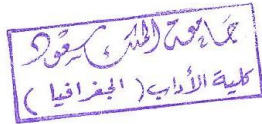 جامعة الملك سعود
كلية الأداب ( الجغرافيا )